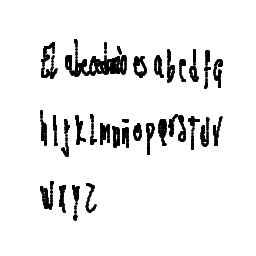 El abecedario es a b c d f g
h i j k l m n ñ o p q r s t u v
w x y z